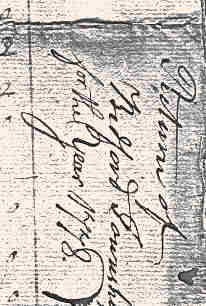 Return of
Bedford Townsh
for the Year 1778.